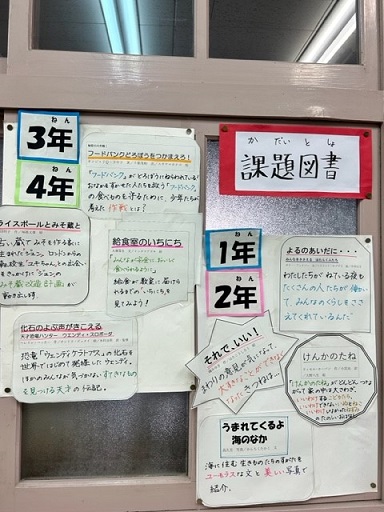 かだいとしょ
課題図書
3年
ねん
4年
ねん
フードバンクどろぼうをつかまえろ!
「フードバンク」がどろぼうにねらわれている!
おなかをすかせた人たちを救う「フードバンク」
の食べものを守るために、少年たちが
考えた作戦とは?
ライスボールとみそ蔵と
給食室のいちにち
「みんなが安全に、おいしく
食べられるように」
給食が教室に届けら
れるまでの"いちにち"を
見てみよう!
化石のよぶ声がきこえる
天才恐竜ハンター ウェンディ・スロボーダ
恐竜「ウェンディケラトプス」の化石を
世界ではじめて発掘した ウェンディ。
ほかのみんなが気づかない すてきなもの
を見つける天才のお話。
1年
ねん
2年
ねん
よるのあいだに・・・
わたしたちが ねている夜も
たくさんの人たちが 働い
て、みんなのくらしをささ
えてくれているんだ
それで、いい!
まわりの意見が気になって、
大すきなことができなく
なったきつねは…
けんかのたね
「けんかのたね」がどんどん つな
がって 家の中は大さわぎ。
うまれてくるよ
海のなか
海に住む 生きものたちのすがたを
ユーモラスな文 と 美しい写真で
紹介。